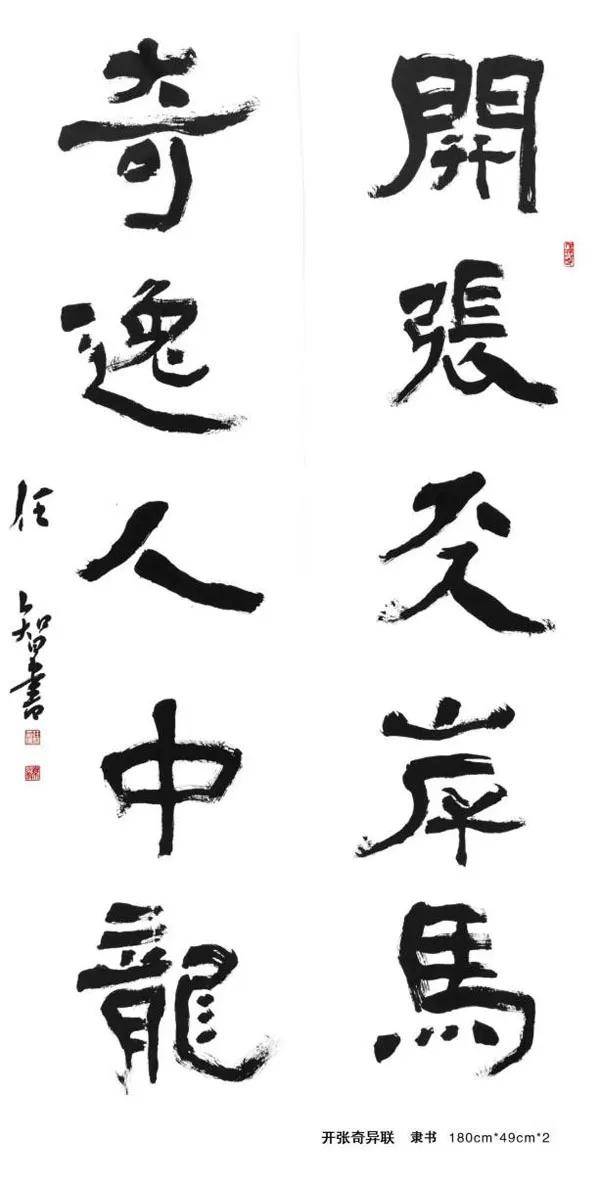 開張天岸馬
奇逸人中龍
任智書
开张奇异联 隶书 180cm*49cm*2